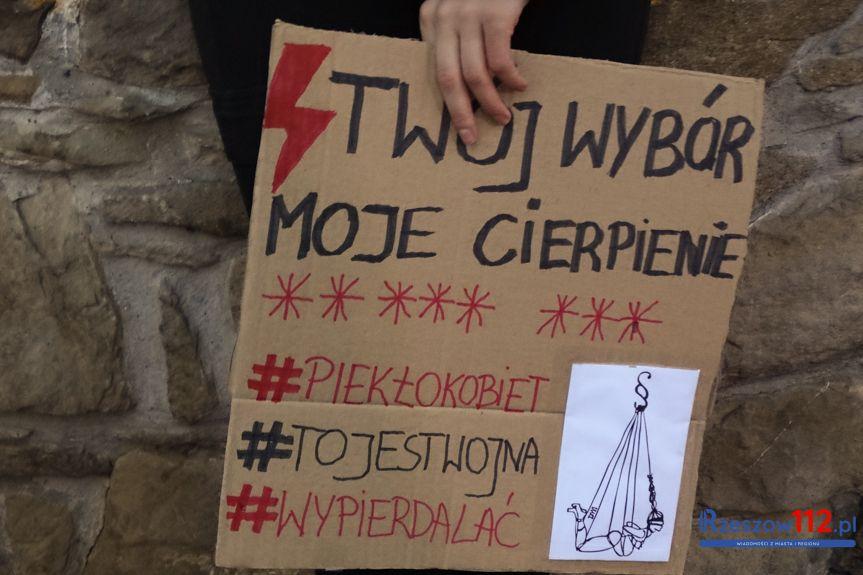 TWÓJ WYBÓR
MOJE CIERPIENIE
** *** ***
#PIEKŁOKOBIET
#TOJESTWOJNA
#WYPIERDALAĆ
Rzeszow112.pl
WIADOMOŚCI Z MIASTA I REGIONU